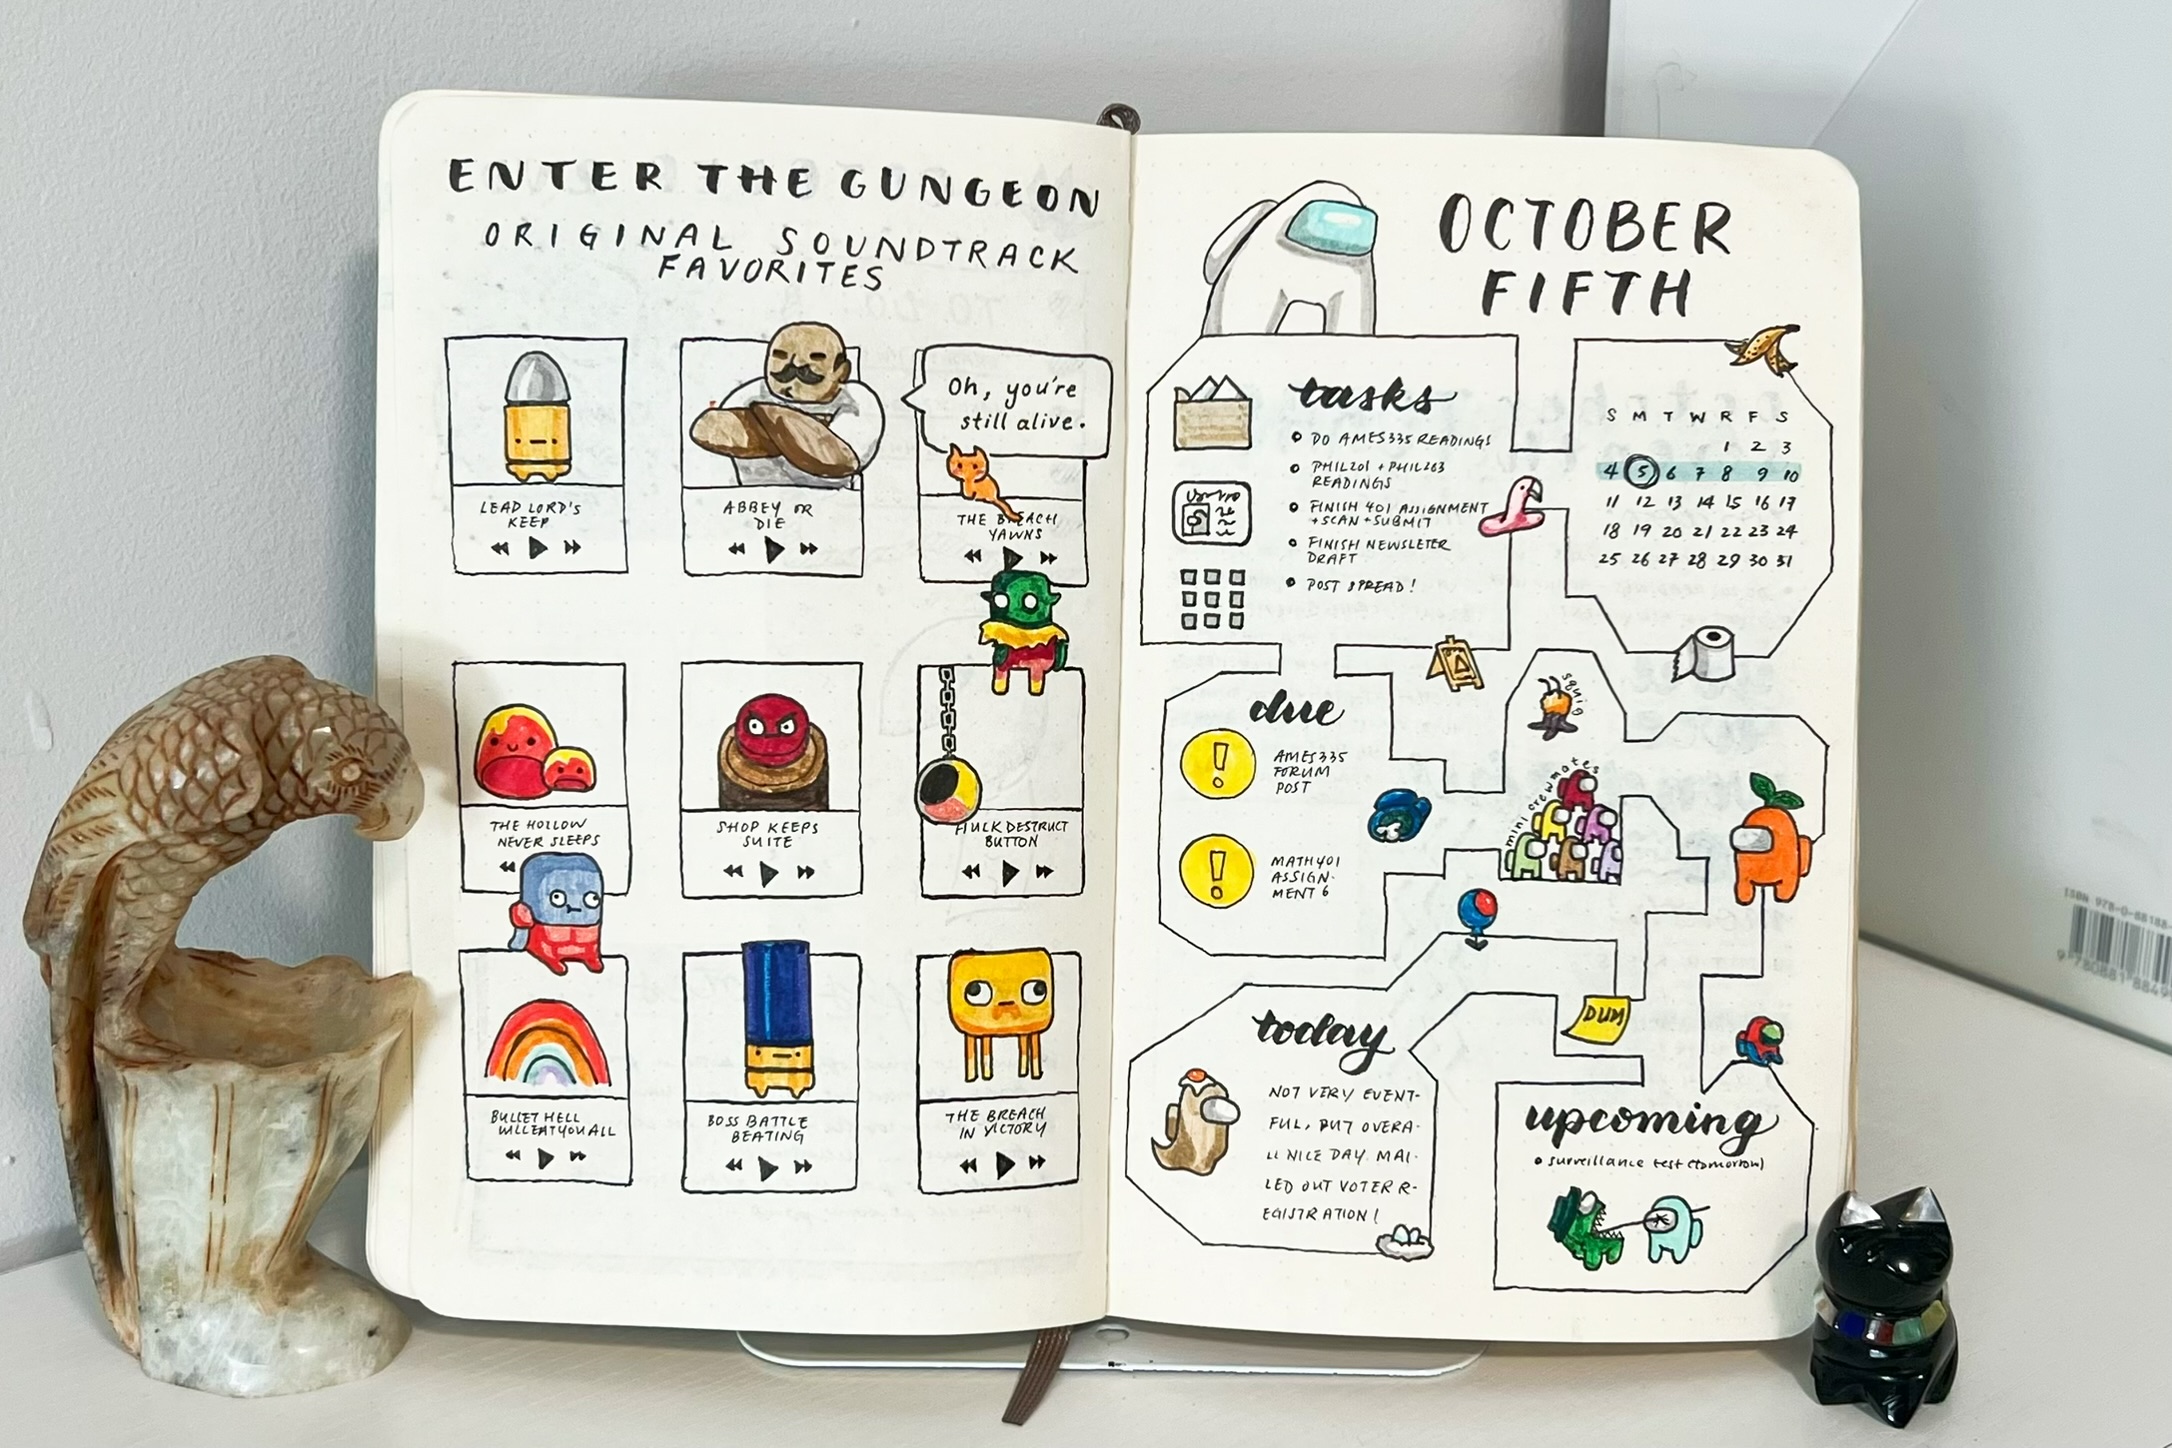 ENTER THE GUNGEON
ORIGINAL SOUNDTRACK
FAVORITES
LEAD LORD'S
KEEP
ABBEY OR
DIE
Oh, you're
still alive.
THE BREACH
YAWNS
THE HOLLOW
NEVER SLEEPS
SHOP KEEPS
SUITE
HULK DESTRUCT
BUTTON
BULLET HELL
WILLEATYOUALL
BOSS BATTLE
BEATING
THE BREACH
IN VICTORY
OCTOBER
FIFTH
tasks
DO AMES335 READINGS
PHIL201 + PHIL263
READINGS
FINISH 401 ASSIGNMENT
+ SCAN + SUBMIT
FINISH NEWSLETER
DRAFT
POST SPREAD!
S M T W R F S
1 2 3
4 5 6 7 8 9 10
11 12 13 14 15 16 17
18 19 20 21 22 23 24
25 26 27 28 29 30 31
due
!
AMES335
FORUM
POST
!
MATH401
ASSIGN-
MENT 6
squig
mini crewmates
DUM
today
NOT VERY EVENT-
FUL, BUT OVERA-
LL NICE DAY. MAI-
LED OUT VOTER R-
EGISTRATION!
upcoming
surveillance test (tomorrow)